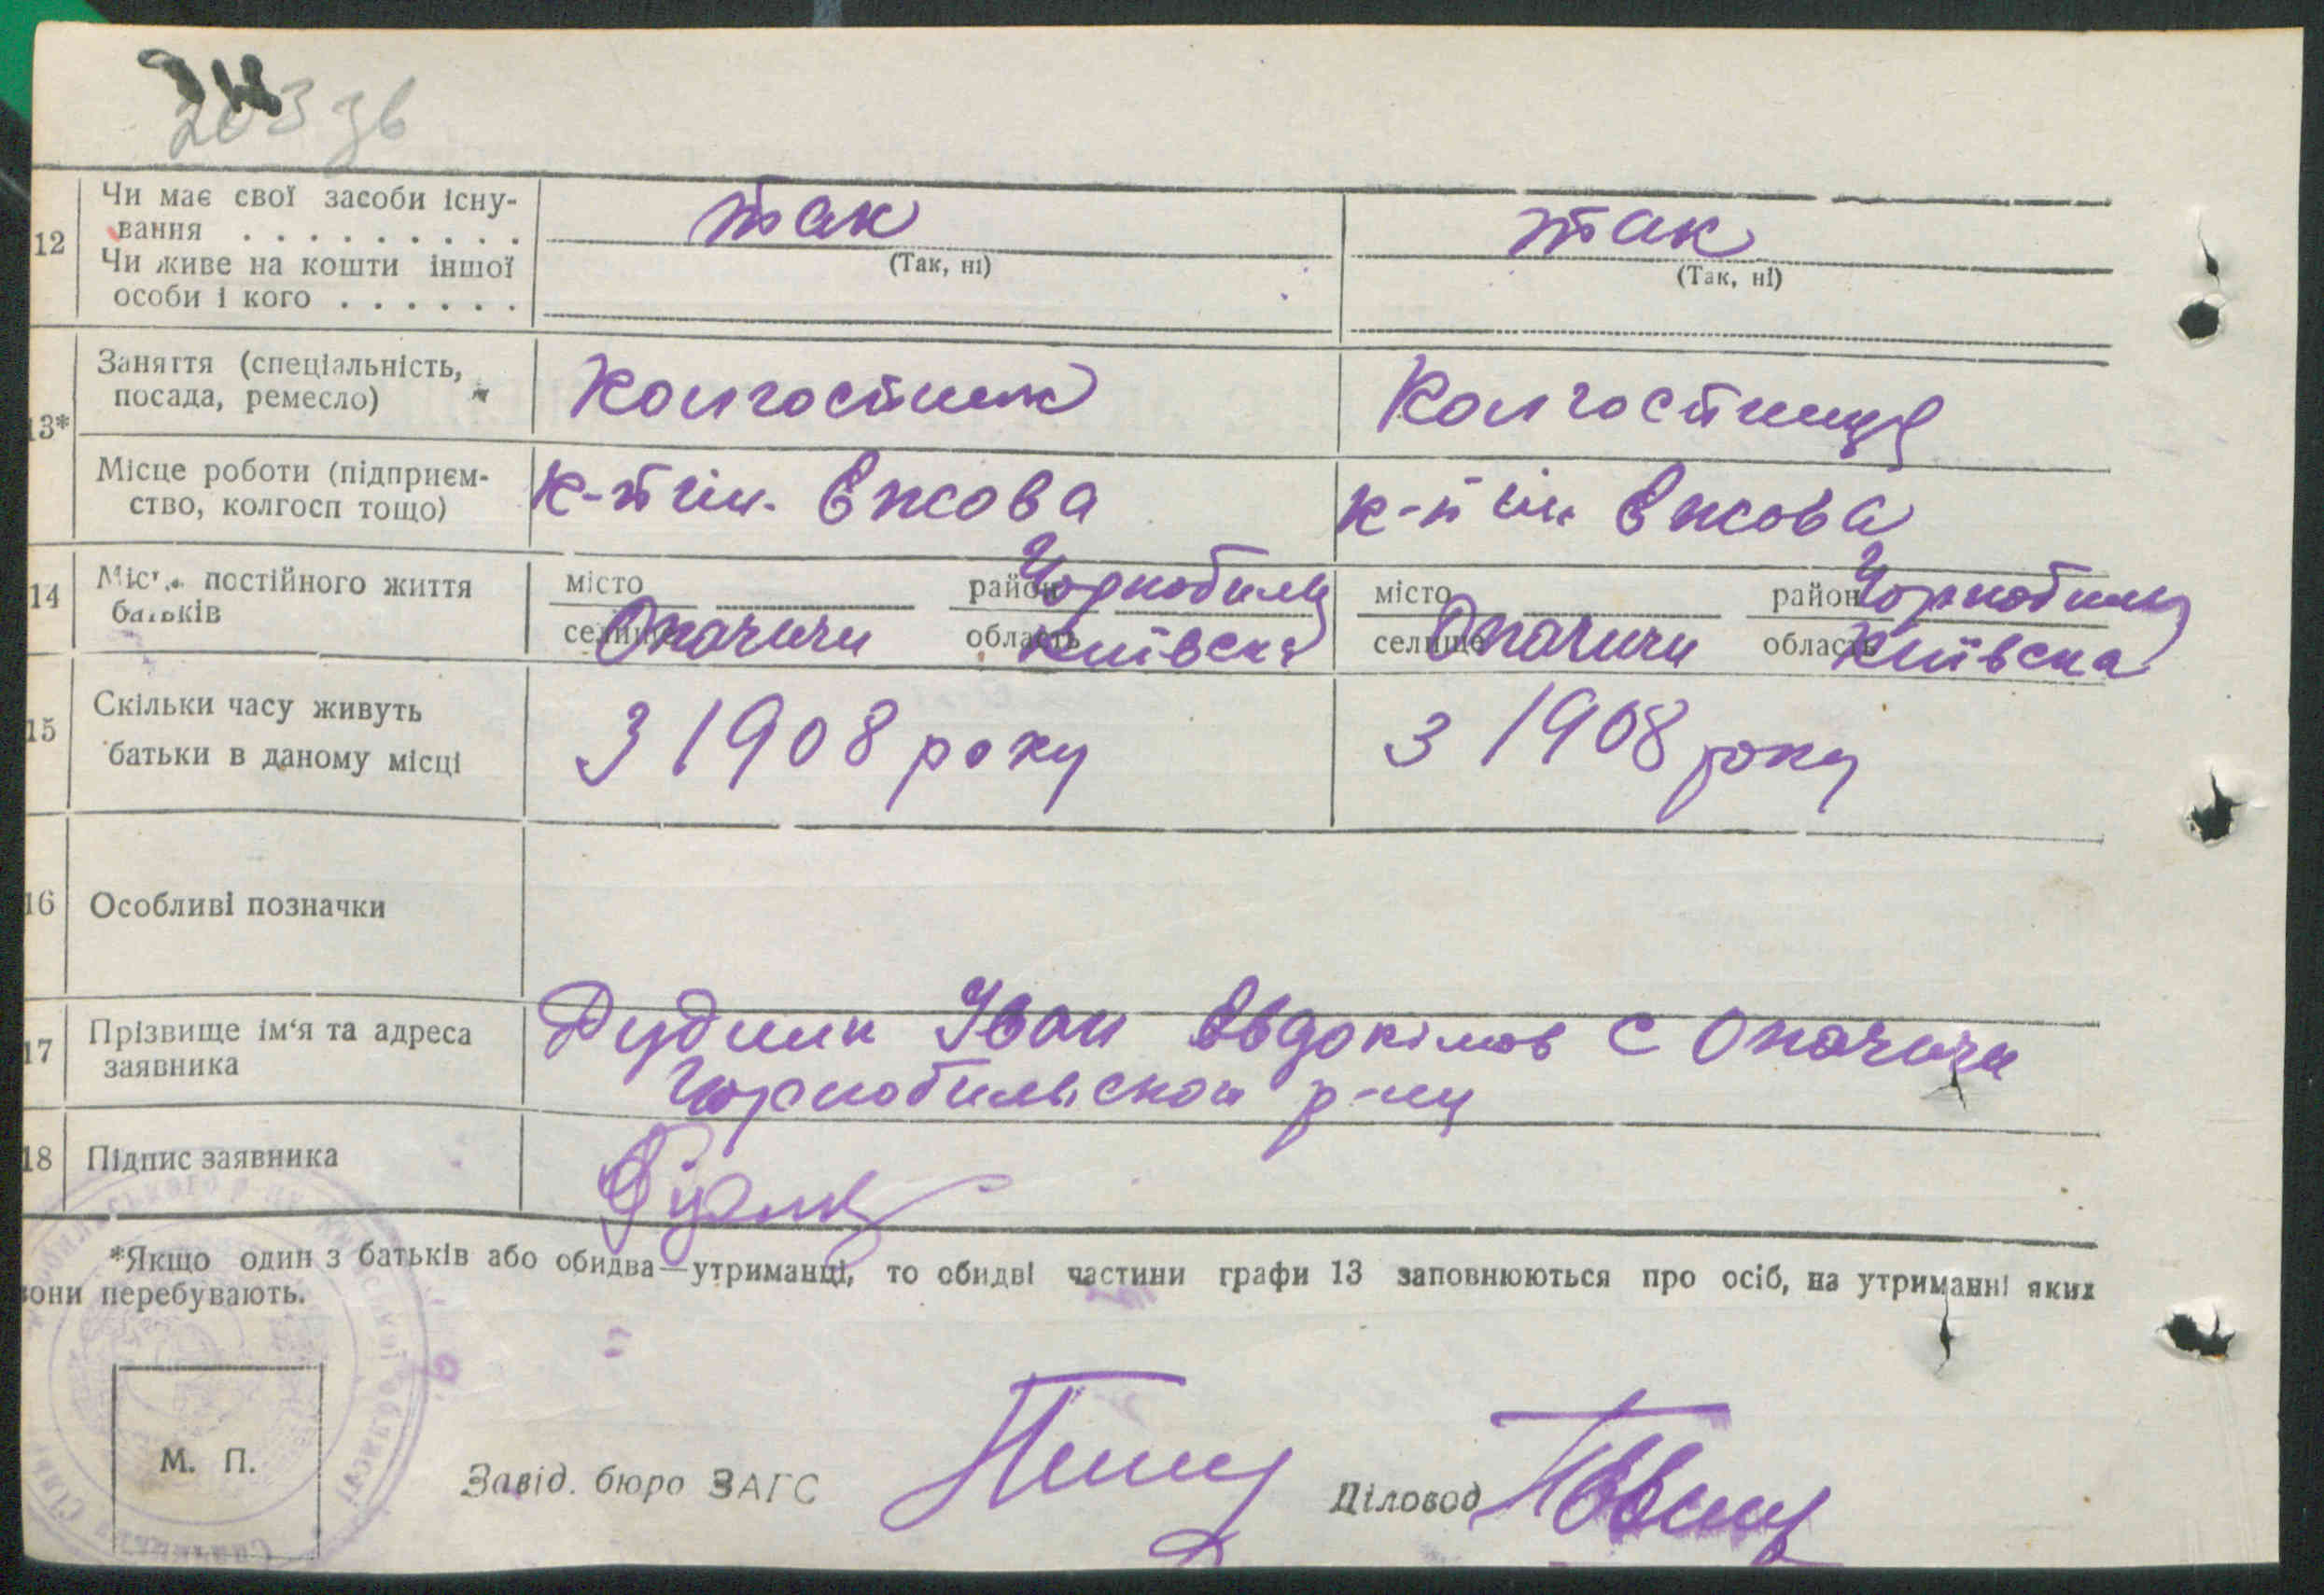 203 зв
12 Чи має свої засоби існу-
вання . . . . . . . . . так так
(Так, ні) (Так, ні)
Чи живе на кошти іншої
особи і кого . . . . . .
13* Заняття (спеціальність,
посада, ремесло) Колгоспник Колгоспниця
Місце роботи (підприєм-
ство, колгосп тощо) к-п ім. Єжова к-п ім. Єжова
14 Місце постійного життя
батьків
місто район Чорнобиль місто район Чорнобиль
селище Опачичи область Київська селище Опачичи область Київська
15 Скільки часу живуть
батьки в даному місці З 1908 року з 1908 року
16 Особливі позначки
17 Прізвище ім‘я та адреса
заявника Дудник Іван Евдокімов с Опачичи
Чорнобильскои р-ну
18 Підпис заявника
*Якщо один з батьків або обидва—утриманці, то обидві частини графи 13 заповнюються про осіб, на утриманні яких
вони перебувають.
М. П.
Завід. бюро ЗАГС Діловод